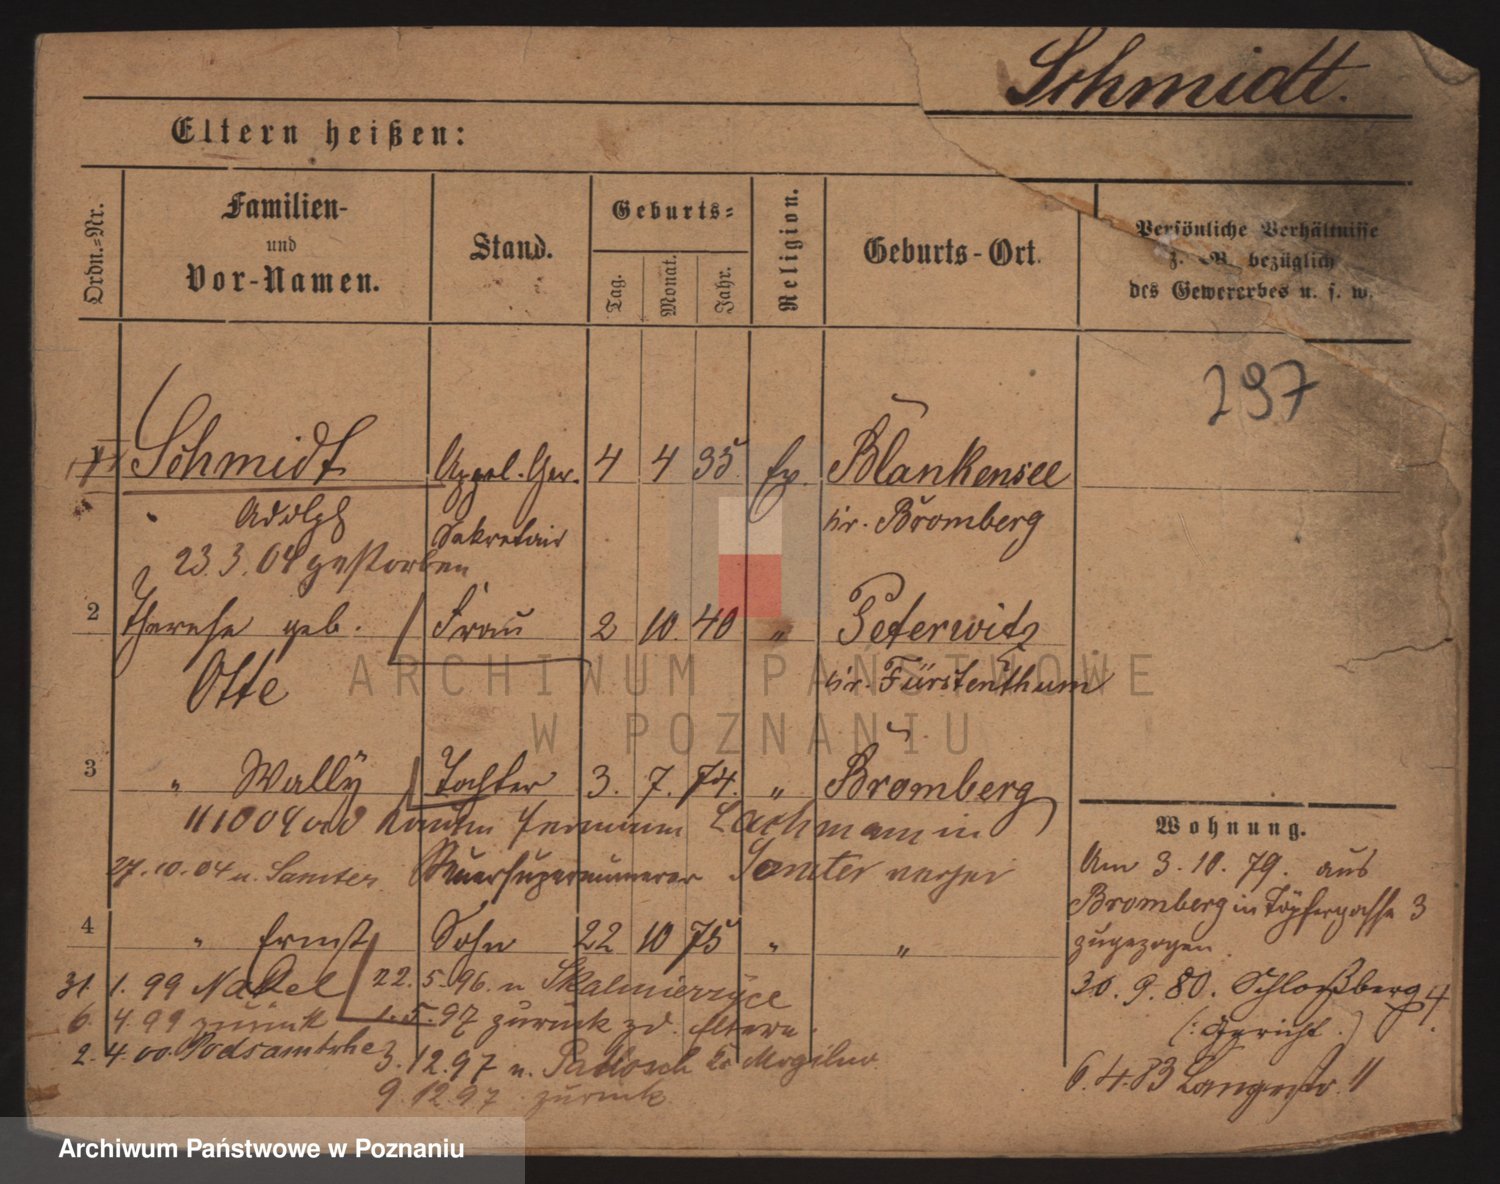 Schmidt.
Eltern heißen:
Ordn.=Nr.
Familien-
und
Vor-Namen.
Stand.
Geburts=
Tag.
Monat.
Jahr.
Religion.
Geburts-Ort.
Persönliche Verhältnisse
z. B. bezüglich
des Gewererbes u. s. w.
297
1 Schmidt Appel. Ger. 4 4 35 Ev. Blankensee
Adolph Sekretair Kr. Bromberg
23.3.04 gestorben
2 Therese geb. Frau 2 10. 40 " Peterwitz
Otte Kr. Fürstenthum
3 " Wally Tochter 3. 7. 74. " Bromberg
11 10 04 Lachmann in
27.10.04 n. Samter Steuersupernumerar Samter
4 " Ernst Sohn 22 10 75 " "
31. 1. 99 Nakel 22. 5. 96. n Skalmierzyce
6. 4. 99 zurück 1.5.97 zurück zd. Eltern.
2. 4. 00. Podsamtsche 3.12.97 n. Pakosch Kr Mogilno
9.12.97 zurück
Wohnung.
Am 3. 10. 79. aus
Bromberg in Töpfergasse 3
zugezogen.
30. 9. 80. Schloßberg 4.
(: Gericht.)
6. 4. 83 Langestr. 11
ARCHIWUM PAŃSTWOWE
W POZNANIU
Archiwum Państwowe w Poznaniu